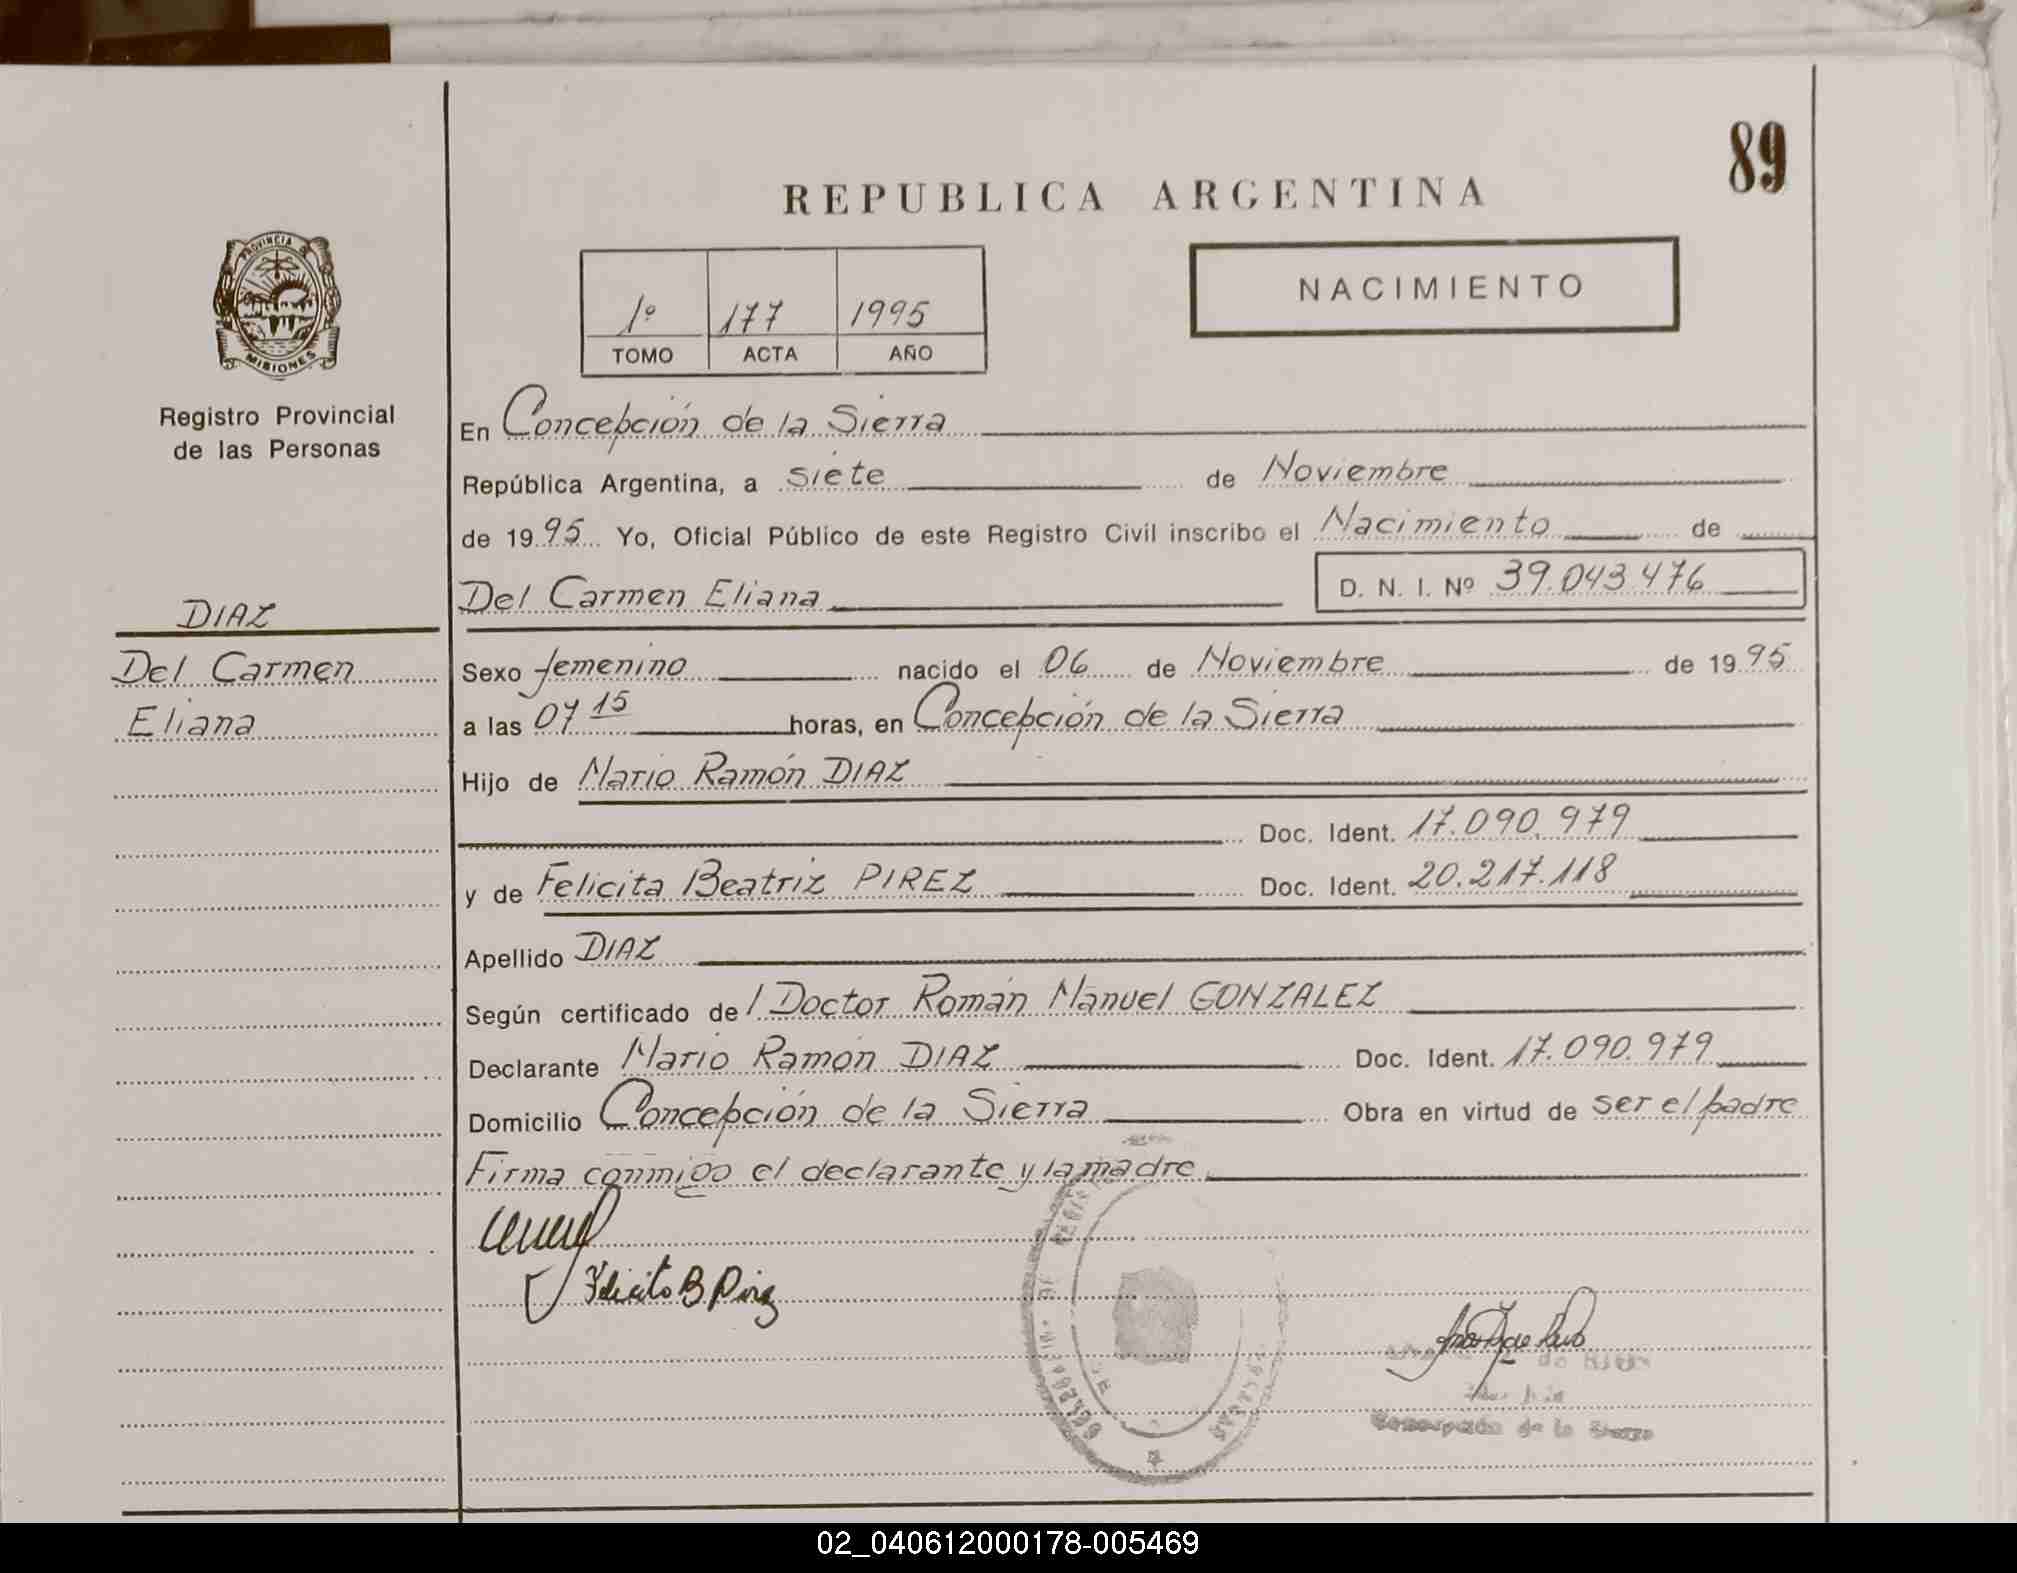 89
REPUBLICA ARGENTINA
PROVINCIA DE
MISIONES
1º 177 1995
TOMO ACTA AÑO
NACIMIENTO
Registro Provincial
de las Personas
DIAZ
Del Carmen
Eliana
En Concepción de la Sierra
República Argentina, a siete de Noviembre
de 1995 Yo, Oficial Público de este Registro Civil inscribo el Nacimiento de
Del Carmen Eliana D. N. I. Nº 39.043.476
Sexo femenino nacido el 06 de Noviembre de 1995
a las 07 15 horas, en Concepción de la Sierra
Hijo de Mario Ramón DIAZ
Doc. Ident. 17.090.979
y de Felicita Beatriz PIREZ Doc. Ident. 20.217.118
Apellido DIAZ
Según certificado del Doctor Román Manuel GONZALEZ
Declarante Mario Ramón DIAZ Doc. Ident. 17.090.979
Domicilio Concepción de la Sierra Obra en virtud de ser el padre
Firma conmigo el declarante y la madre
Felicita B Pirez
Concepción de la Sierra
02_040612000178-005469